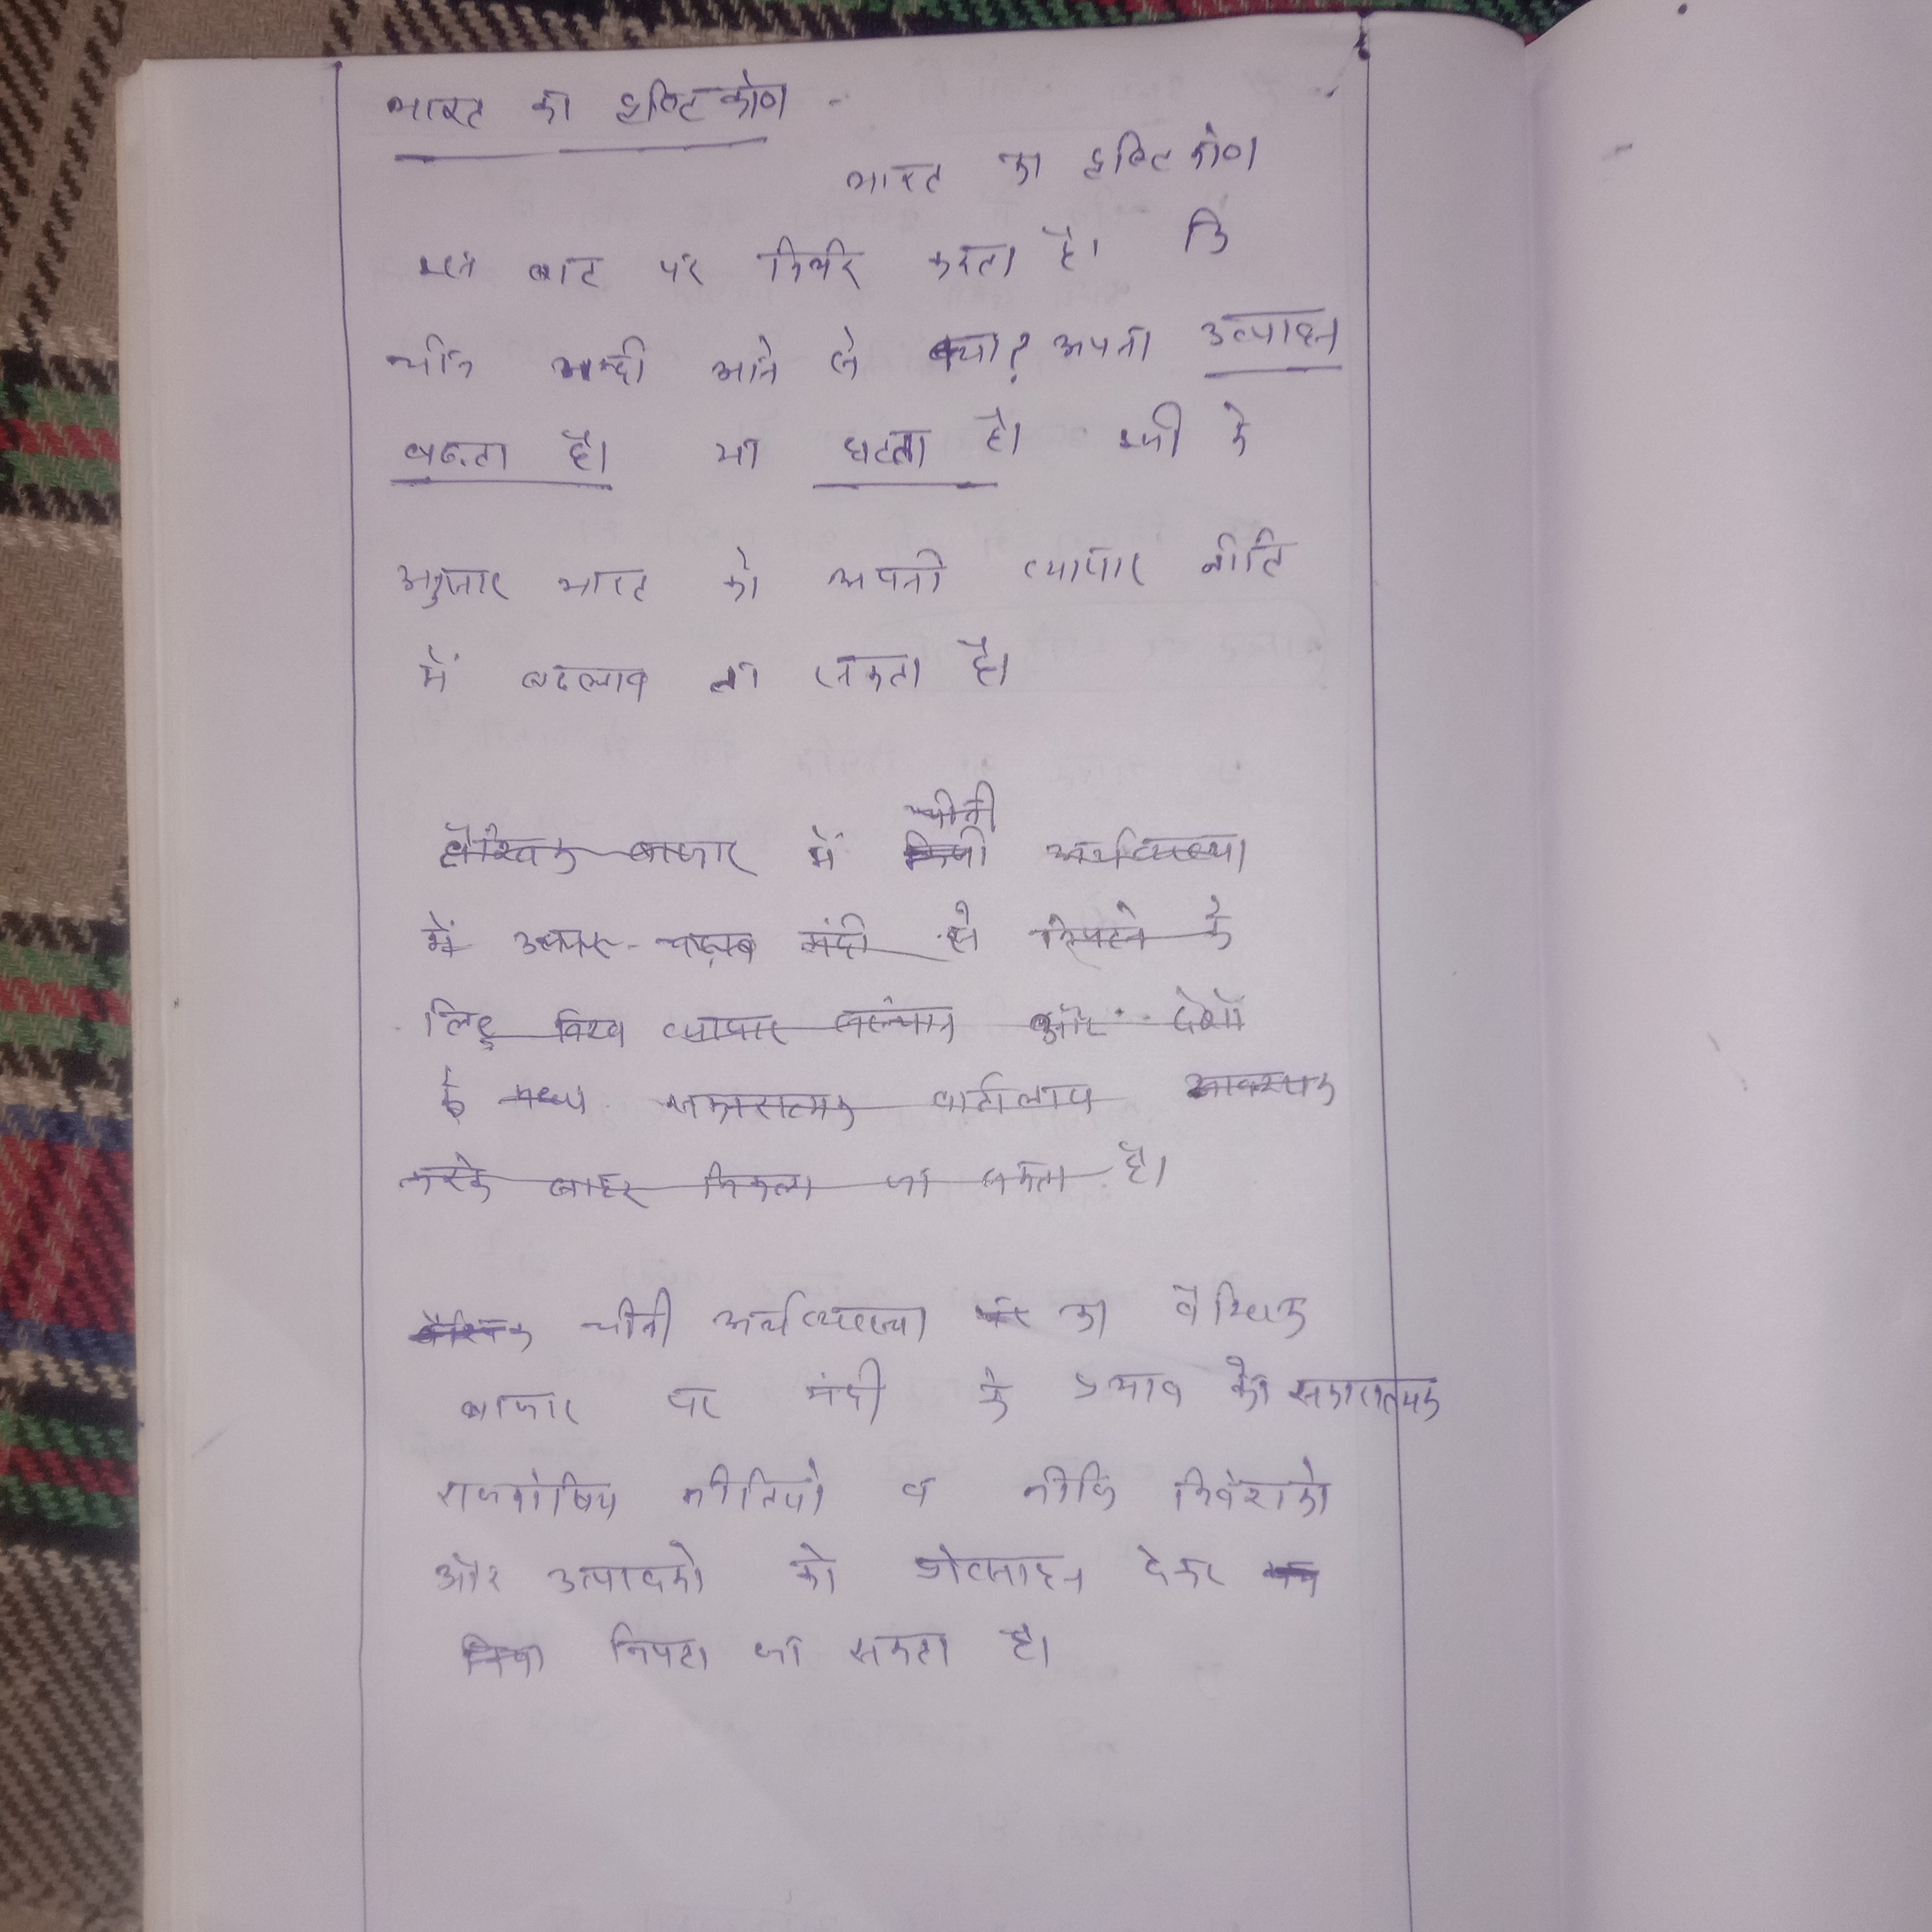 भारत का दृष्टिकोण -
भारत का दृष्टिकोण
इस बात पर निर्भर करता है। कि
चीन मन्दी आने से क्या? अपना उत्पादन
बढ़ता है। या घटता है। इसी के
अनुसार भारत को अपनी व्यापार नीति
में बदलाव ला सकता है।
चीनी
वैश्विक बाजार में अर्थव्यवस्था
में उतार-चढ़ाव मंदी से निपटने के
लिए विश्व व्यापार संस्थान और देशों
के मध्य सकारात्मक वार्तालाप आवश्यक
करके बाहर निकला जा सकता है।
वैश्विक चीनी अर्थव्यवस्था का वैश्विक
बाजार पर मंदी के प्रभाव को सकारात्मक
राजकोषिय नीतियो व निवेशको
और उत्पादको को प्रोत्साहन देकर
निपटा जा सकता है।